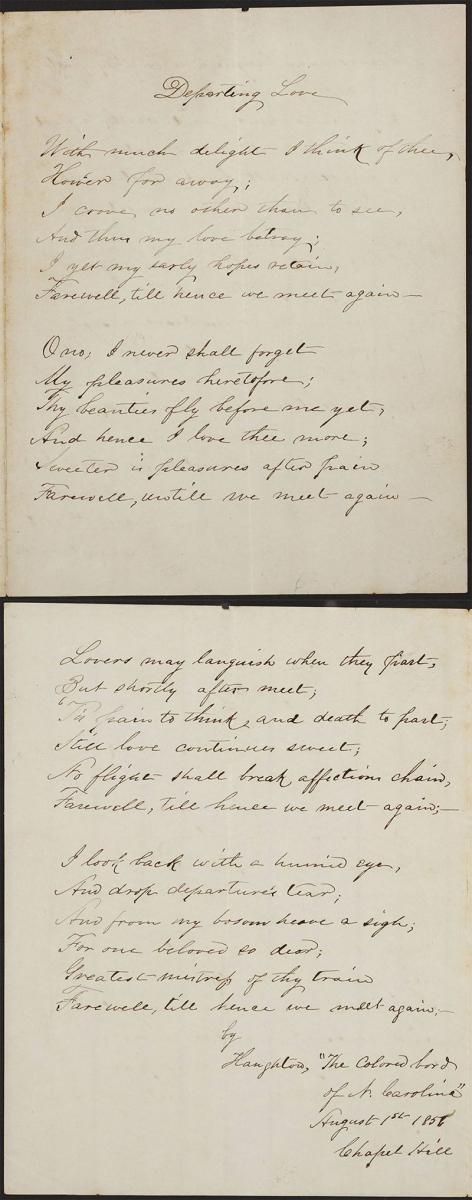 Departing Love
With much delight I think of thee,
However far away;
I crave no other charm to see,
And thus my love betray;
I yet my early hopes retain,
Farewell, till hence we meet again —
O no; I never shall forget
My pleasures heretofore;
Thy beauties fly before me yet,
And hence I love thee more;
Sweeter is pleasures after pain
Farewell, untill we meet again —
Lovers may languish when they part,
But shortly after meet;
'Tis pain to think, and death to part;
Still love continues sweet;
No flight shall break affections chain,
Farewell, till hence we meet again; —
I look back with a humid eye,
And drop departure's tear;
And from my bosom heave a sigh;
For one beloved so dear;
Greatest mistress of thy train
Farewell, till hence we meet again; —
by
"The Colored bard
of N. Carolina"
August 1st
Chapel Hill